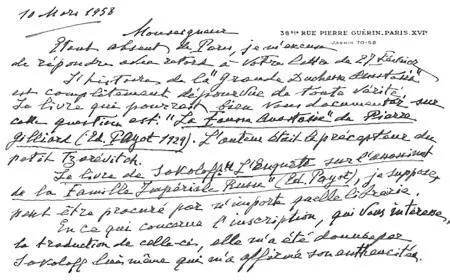 10 Mars 1958
Monseigneur
38BIS RUE PIERRE GUÉRIN. PARIS. XVIE
JASMIN 70-58
Etant absent de Paris, je m'excuse
de répondre avec retard à votre lettre de 27 Février
L'histoire de la "Grande Duchesse Anastasie"
est complètement dépourvue de toute vérité.
Le livre qui pourrait bien vous documenter sur
cette question est: "La Fausse Anastasie" de Pierre
Gilliard (Ed. Payot 1929). L'auteur était le précepteur du
petit Tzarévitch.
Le livre de Sokoloff "L'Enquête sur l'assassinat
de la Famille Impériale Russe" (Ed. Payot), je suppose,
peut être procuré par n'importe quelle librairie.
En ce qui concerne l'inscription, qui vous intéresse,
la traduction de celle-ci, elle m'a été donnée par
Sokoloff lui même qui m'a affirmé son authenticité.